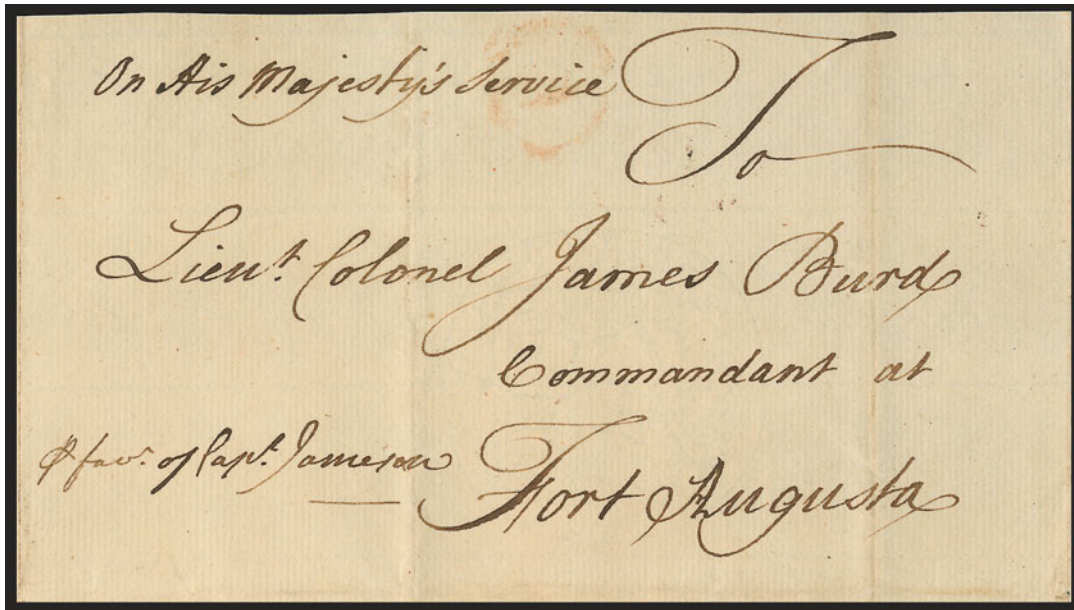 On His Majesty's Service
To
Lieut. Colonel James Burd
Commandant at
⅌ favr. of Capt. Jameson
Fort Augusta